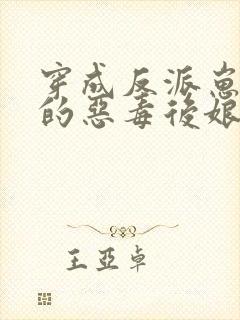 穿成反派崽
的惡毒後娘
王亞卓